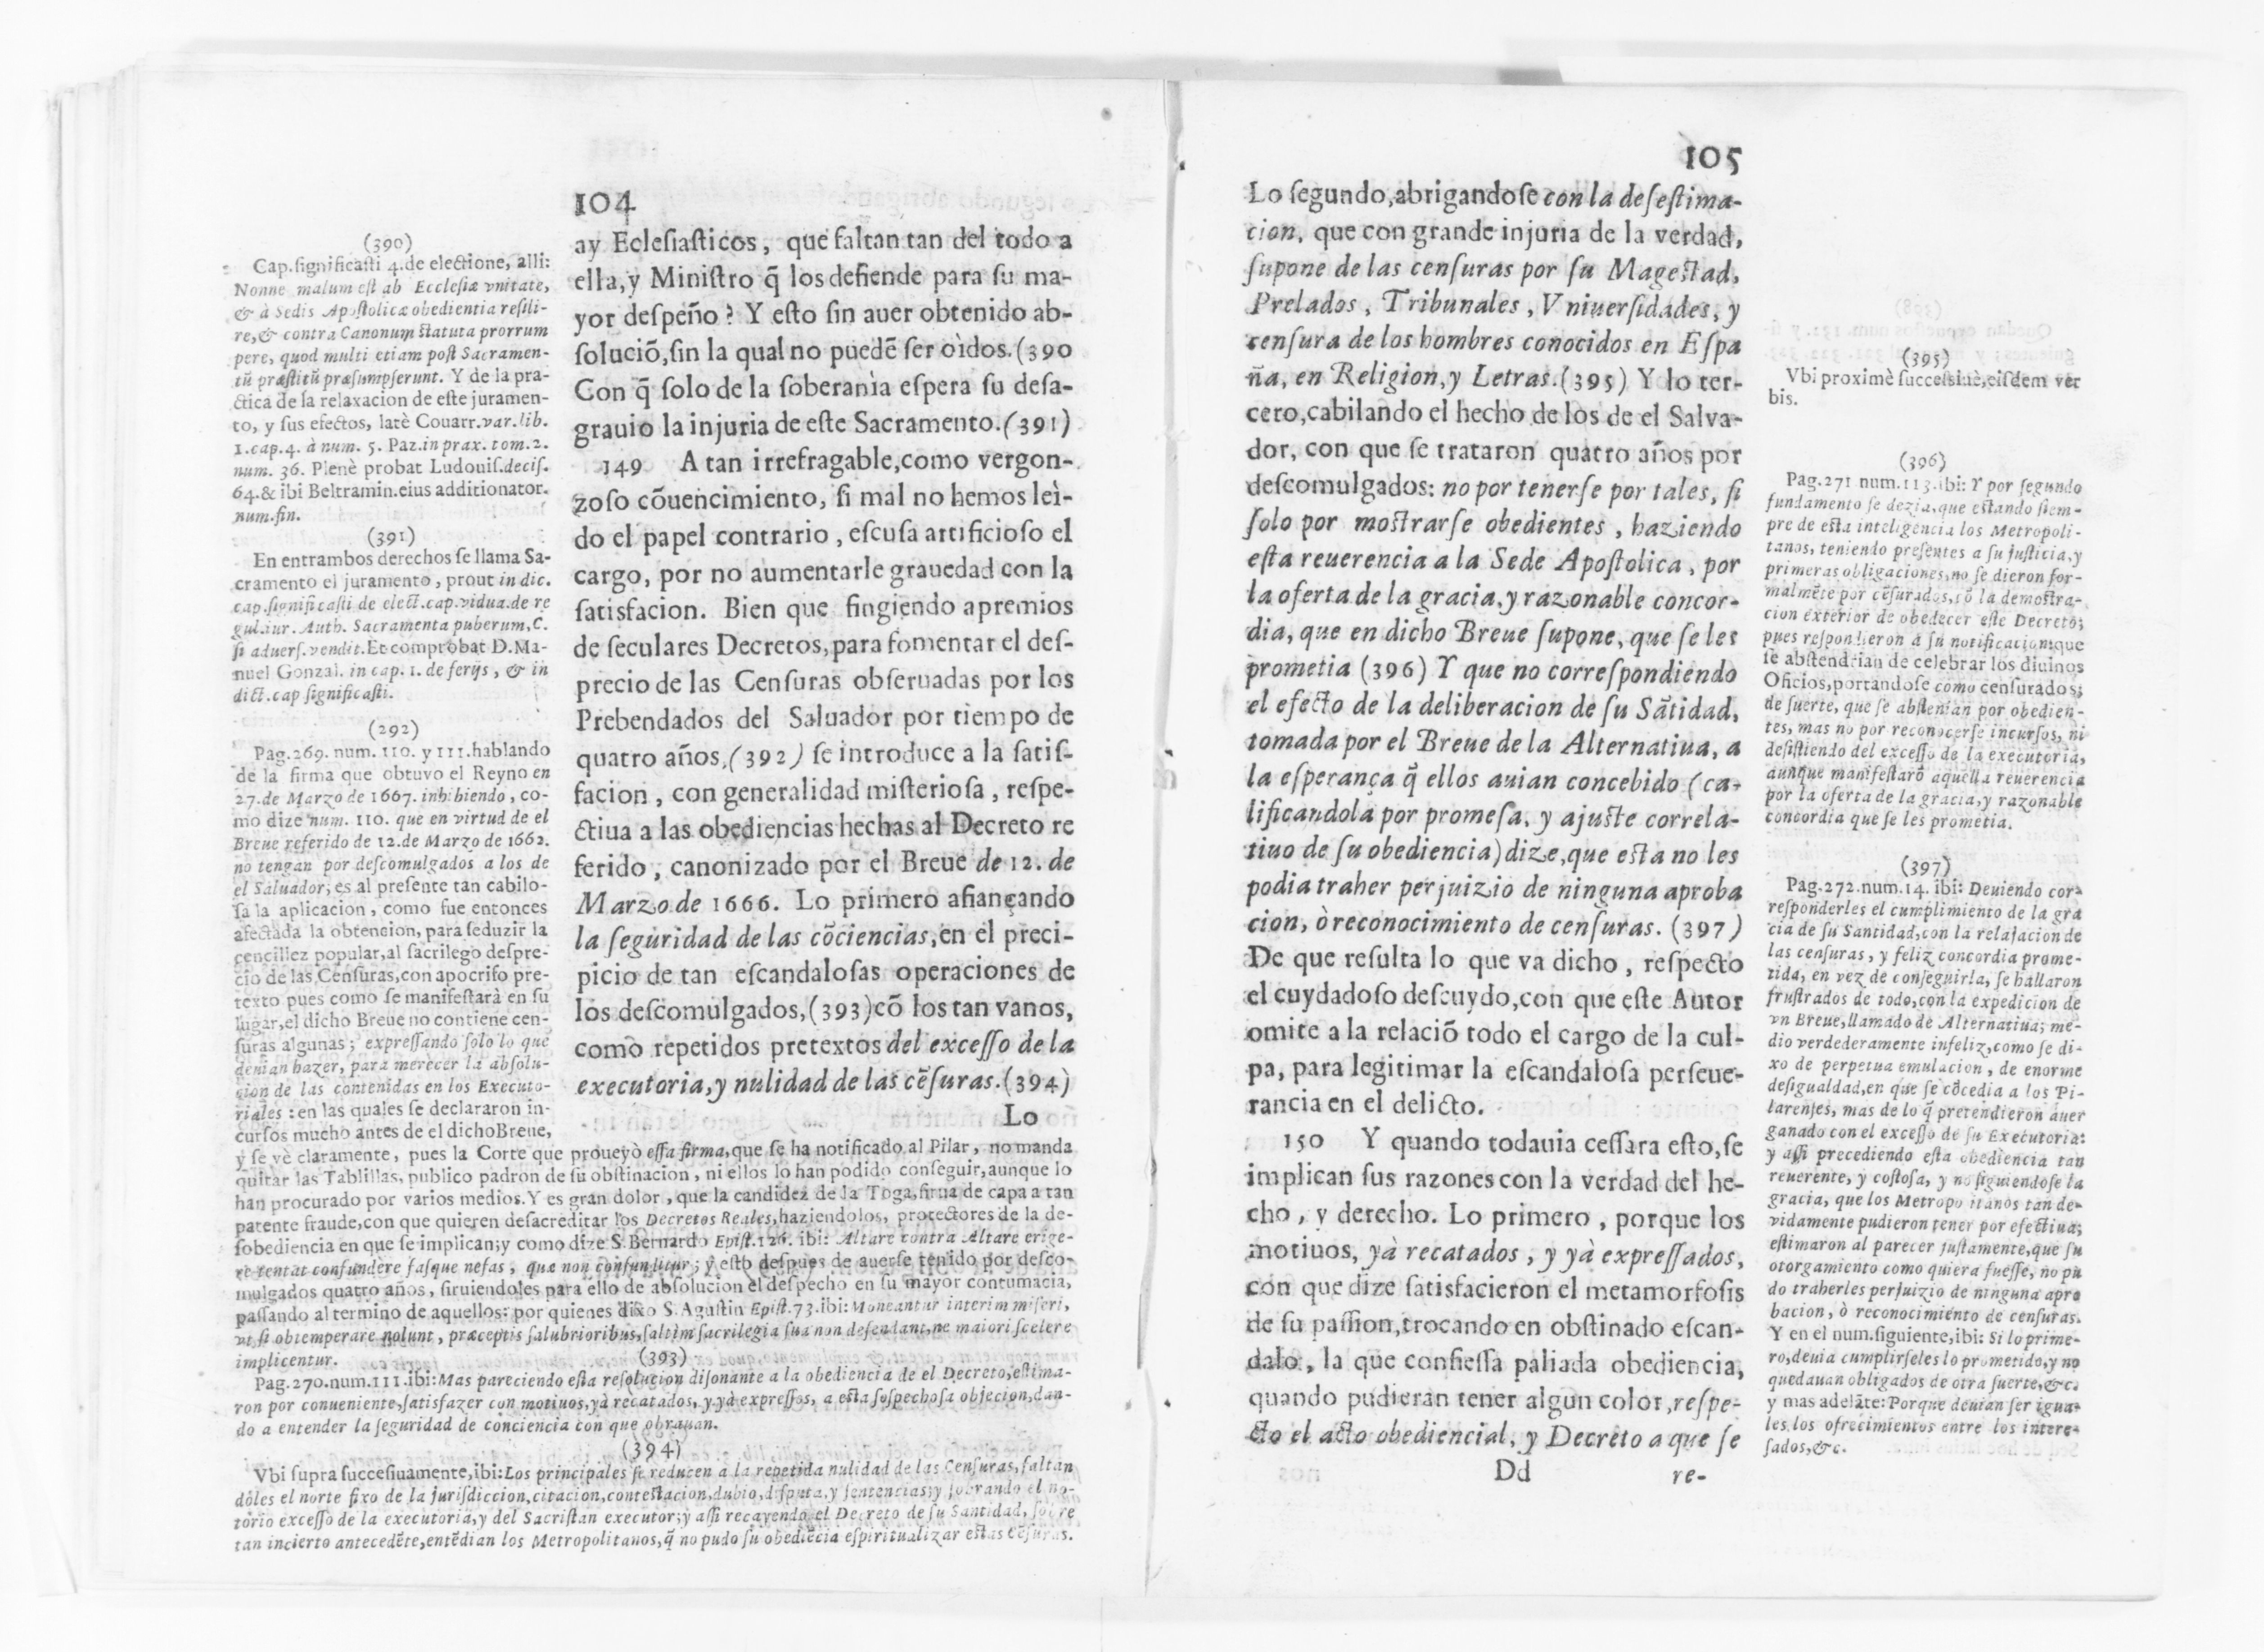 104
ay Ecleſiaſticos, que faltan tan del todo a
ella, y Miniſtro q̃ los defiende para ſu ma-
yor deſpeño? Y eſto ſin auer obtenido ab-
ſoluciõ, ſin la qual no puedẽ ſer oìdos. (390
Con q̃ ſolo de la ſoberanìa eſpera ſu deſa-
grauio la injuria de eſte Sacramento. (391)
149 A tan irrefragable, como vergon-
zoſo cõuencimiento, ſi mal no hemos leì-
do el papel contrario, eſcuſa artificioſo el
cargo, por no aumentarle grauedad con la
ſatisfacion. Bien que fingiendo apremios
de ſeculares Decretos, para fomentar el deſ-
precio de las Cenſuras obſeruadas por los
Prebendados del Saluador por tiempo de
quatro años, (392) ſe introduce a la ſatiſ-
facion, con generalidad miſterioſa, reſpe-
ctiua a las obediencias hechas al Decreto re
ferido, canonizado por el Breue de 12. de
Marzo de 1666. Lo primero afiançando
la ſeguridad de las cõciencias, en el preci-
picio de tan eſcandaloſas operaciones de
los deſcomulgados, (393) cõ los tan vanos,
como repetidos pretextos del exceſſo de la
executoria, y nulidad de las cẽſuras. (394)
Lo
(390)
Cap. ſignificaſti 4. de electione, alli:
Nonne malum eſt ab Eccleſiæ vnitate,
& à Sedis Apoſtolicæ obedientia reſili-
re, & contra Canonum ſtatuta prorrum
pere, quod multi etiam poſt Sacramen-
tũ præſtitũ præſumpſerunt. Y de la pra-
ctica de la relaxacion de eſte juramen-
to, y ſus efectos, latè Couarr. var. lib.
1. cap. 4. à num. 5. Paz. in prax. tom. 2.
num. 36. Plenè probat Ludouiſ. deciſ.
64. & ibi Beltramin. eius additionator.
num. fin.
(391)
En entrambos derechos ſe llama Sa-
cramento el juramento, prout in dic.
cap. ſignificaſti de elect. cap. vidua. de re
gulaiur. Auth. Sacramenta puberum, C.
ſi aduerſ. vendit. Et comprobat D. Ma-
nuel Gonzal. in cap. 1. de ferijs, & in
dict. cap ſignificaſti.
(292)
Pag. 269. num. 110. y 111. hablando
de la firma que obtuvo el Reyno en
27. de Marzo de 1667. inhibiendo, co-
mo dize num. 110. que en virtud de el
Breue referido de 12. de Marzo de 1662.
no tengan por deſcomulgados a los de
el Saluador; es al preſente tan cabilo-
ſa la aplicacion, como fue entonces
afectada la obtencion, para ſeduzir la
cencillez popular, al ſacrilego deſpre-
cio de las Cenſuras, con apocrifo pre-
texto pues como ſe manifeſtarà en ſu
lugar, el dicho Breue no contiene cen-
ſuras algunas; expreſſando ſolo lo que
deuian hazer, para merecer la abſolu-
cion de las contenidas en los Executo-
riales: en las quales ſe declararon in-
curſos mucho antes de el dicho Breue,
y ſe vè claramente, pues la Corte que proueyò eſſa firma, que ſe ha notificado al Pilar, no manda
quitar las Tablillas, publico padron de ſu obſtinacion, ni ellos lo han podido conſeguir, aunque lo
han procurado por varios medios. Y es gran dolor, que la candidez de la Toga, ſirua de capa a tan
patente fraude, con que quieren deſacreditar los Decretos Reales, haziendolos, protectores de la de-
ſobediencia en que ſe implican; y como dize S. Bernardo Epiſt. 126. ibi: Altare contra Altare erige-
re tentat confundère faſque nefas, quæ non confunditur; y eſto deſpues de auerſe tenido por deſco-
mulgados quatro años, ſiruiendoles para ello de abſolucion el deſpecho en ſu mayor contumacia,
paſſando al termino de aquellos: por quienes dixo S. Aguſtin Epiſt. 73. ibi: Moneantur interim miſeri,
vt ſi obtemperare nolunt, præceptis ſalubrioribus, ſaltim ſacrilegia ſua non defendant, ne maiori ſcelere
implicentur.
(393)
Pag. 270. num. 111. ibi: Mas pareciendo eſta reſolucion diſonante a la obediencia de el Decreto, eſtima-
ron por conueniente, ſatisfazer con motiuos, yà recatados, y yà expreſſos, a eſta ſoſpechoſa objecion, dan-
do a entender la ſeguridad de conciencia con que obrauan.
(394)
Vbi ſupra ſucceſiuamente, ibi: Los principales ſe reducen a la repetida nulidad de las Cenſuras, faltan
doles el norte fixo de la juriſdiccion, citacion, conteſtacion, dubio, diſputa, y ſentencias; y ſobrando el no-
torio exceſſo de la executoria, y del Sacriſtan executor; y aſſi recayendo el Decreto de ſu Santidad, ſobre
tan incierto antecedẽte, entẽdian los Metropolitanos, q̃ no pudo ſu obediẽcia eſpiritualizar eſtas cẽſuras.
105
Lo ſegundo, abrigandoſe con la deſeſtima-
cion, que con grande injuria de la verdad,
ſupone de las cenſuras por ſu Mageſtad,
Prelados, Tribunales, Vniuerſidades, y
cenſura de los hombres conocidos en Eſpa
ña, en Religion, y Letras. (395) Y lo ter-
cero, cabilando el hecho de los de el Salva-
dor, con que ſe trataron quatro años por
deſcomulgados: no por tenerſe por tales, ſi
ſolo por moſtrarſe obedientes, haziendo
eſta reuerencia a la Sede Apoſtolica, por
la oferta de la gracia, y razonable concor-
dia, que en dicho Breue ſupone, que ſe les
prometia (396) Y que no correſpondiendo
el efecto de la deliberacion de ſu Sãtidad,
tomada por el Breue de la Alternatiua, a
la eſperança q̃ ellos auian concebido (ca-
lificandola por promeſa, y ajuſte correla-
tiuo de ſu obediencia) dize, que eſta no les
podia traher perjuizio de ninguna aproba
cion, ò reconocimiento de cenſuras. (397)
De que reſulta lo que va dicho, reſpecto
el cuydadoſo deſcuydo, con que eſte Autor
omite a la relaciõ todo el cargo de la cul-
pa, para legitimar la eſcandaloſa perſeue-
rancia en el delicto.
150 Y quando todauia ceſſara eſto, ſe
implican ſus razones con la verdad del he-
cho, y derecho. Lo primero, porque los
motiuos, yà recatados, y yà expreſſados,
con que dize ſatisfacieron el metamorfoſis
de ſu paſſion, trocando en obſtinado eſcan-
dalo, la que confieſſa paliada obediencia,
quando pudieran tener algun color, reſpe-
cto el acto obediencial, y Decreto a que ſe
Dd re-
(395)
Vbi proximè ſucceſſiuè, eiſdem ver
bis.
(396)
Pag. 271 num. 113. ibi: Y por ſegundo
fundamento ſe dezia, que eſtando ſiem-
pre de eſta inteligencia los Metropoli-
tanos, teniendo preſentes a ſu juſticia, y
primeras obligaciones, no ſe dieron for-
malmẽte por cẽſurados, cõ la demoſtra-
cion exterior de obedecer eſte Decreto;
pues reſpondieron a ſu notificacion: que
ſe abſtendrian de celebrar los diuinos
Oficios, portandoſe como cenſurados;
de ſuerte, que ſe abſtenian por obedien-
tes, mas no por reconocerſe incurſos, ni
deſiſtiendo del exceſſo de la executoria,
aunque manifeſtarõ aquella reuerencia
por la oferta de la gracia, y razonable
concordia que ſe les prometia.
(397)
Pag. 272. num. 14. ibi: Deuiendo cor-
reſponderles el cumplimiento de la gra
cia de ſu Santidad, con la relajacion de
las cenſuras, y feliz concordia prome-
tida, en vez de conſeguirla, ſe hallaron
fruſtrados de todo, con la expedicion de
vn Breue, llamado de Alternatiua; me-
dio verdederamente infeliz, como ſe di-
xo de perpetua emulacion, de enorme
deſigualdad, en que ſe cõcedia a los Pi-
larenſes, mas de lo q̃ pretendieron auer
ganado con el exceſſo de ſu Executoria:
y aſſi precediendo eſta obediencia tan
reuerente, y coſtoſa, y no ſiguiendoſe la
gracia, que los Metropolitanos tan de-
vidamente pudieron tener por efectiua;
eſtimaron al parecer juſtamente, que ſu
otorgamiento como quiera fueſſe, no pu
do traherles perjuizio de ninguna apro
bacion, ò reconocimiento de cenſuras.
Y en el num. ſiguiente, ibi: Si lo prime-
ro, deuia cumplirſeles lo prometido, y no
quedauan obligados de otra ſuerte, &c.
y mas adelãte: Porque deuian ſer igua-
les los ofrecimientos entre los intere-
ſados, &c.